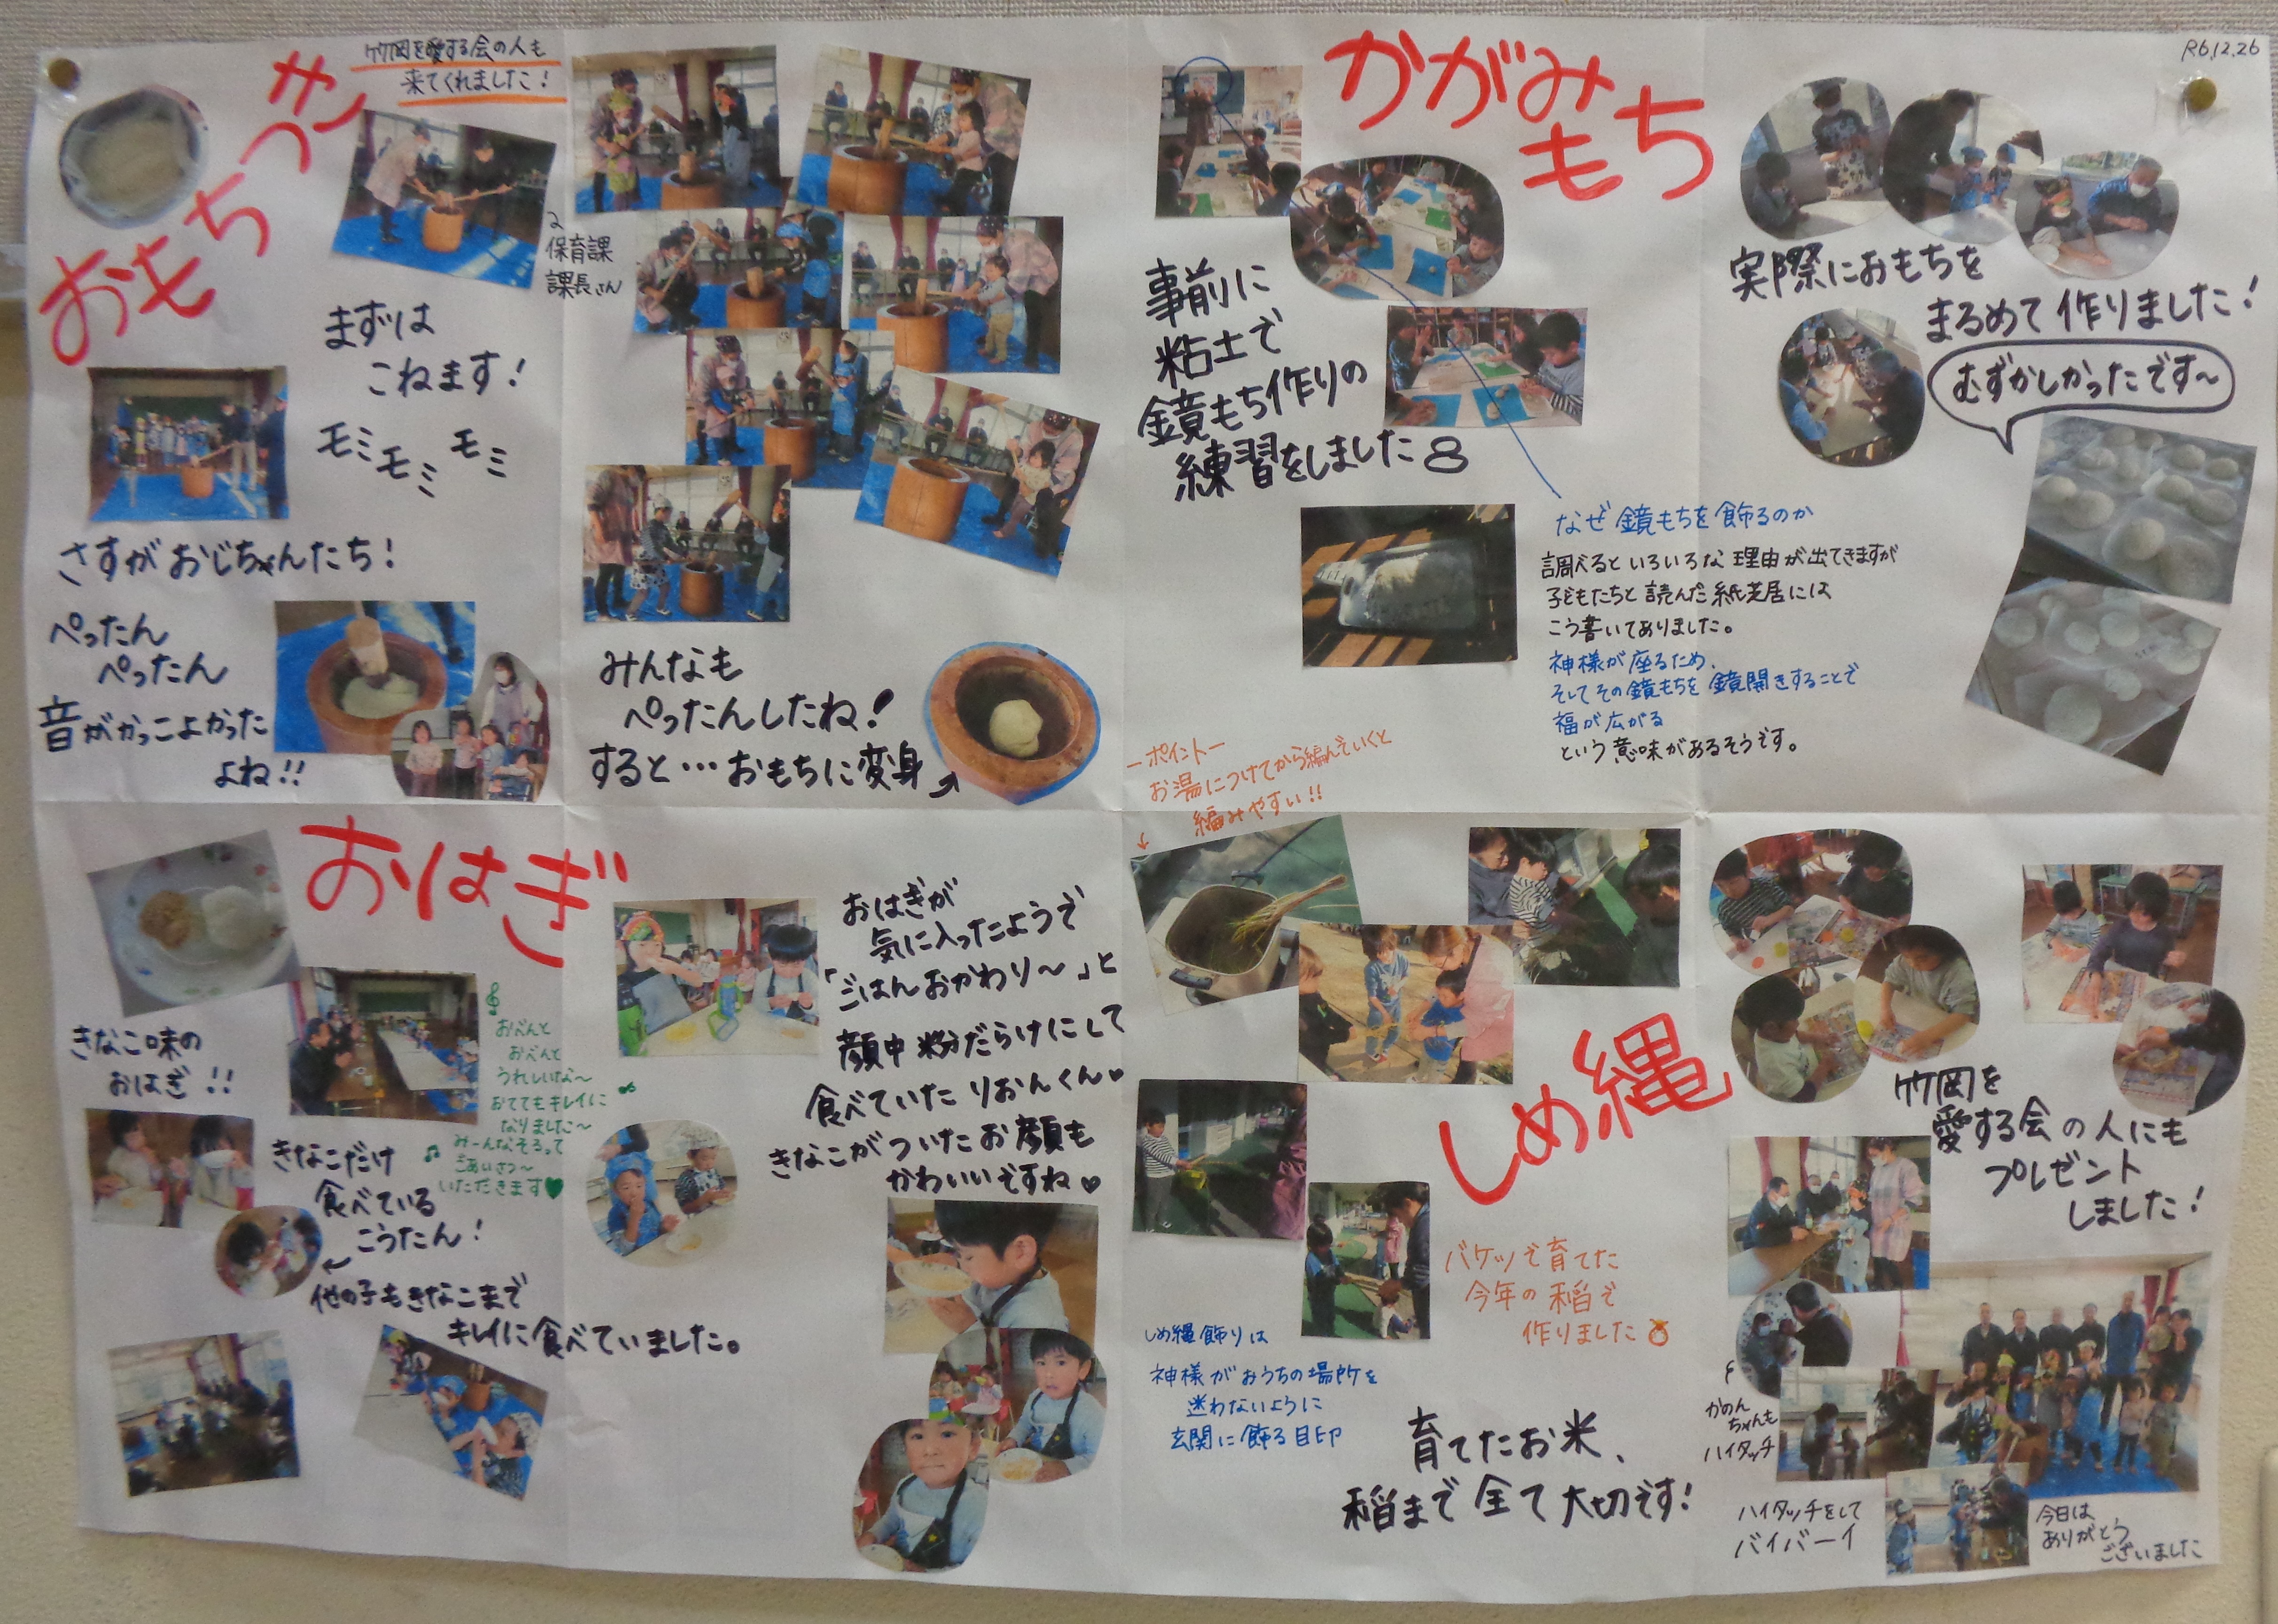 R6.12.26
おもちつき
竹岡を愛する会の人も
来てくれました！
保育課
課長さん
まずは
こねます！
モミモミモミ
さすがおじちゃんたち！
ぺったん
ぺったん
音がかっこよかった
よね!!
みんなも
ぺったんしたね！
すると…おもちに変身
かがみ
もち
事前に
粘土で
鏡もち作りの
練習をしました
なぜ鏡もちを飾るのか
調べるといろいろな理由が出てきますが
子どもたちと読んだ紙芝居には
こう書いてありました。
神様が座るため、
そしてその鏡もちを鏡開きすることで
福が広がる
という意味があるそうです。
実際におもちを
まるめて作りました！
むずかしかったです～
おはぎ
きなこ味の
おはぎ!!
おべんと
おべんと
うれしいな～
おててもキレイに
なりました～
みーんなそろって
ごあいさつ～
いただきます♥
きなこだけ
食べている
こうたん！
他の子もきなこまで
キレイに食べていました。
おはぎが
気に入ったようで
「ごはんおかわり～」と
顔中粉だらけにして
食べていたりおんくん♡
きなこがついたお顔も
かわいいですね♡
しめ縄
ーポイントー
お湯につけてから編んでいくと
編みやすい!!
バケツで育てた
今年の稲で
作りました
しめ縄飾りは
神様がおうちの場所を
迷わないように
玄関に飾る目印
育てたお米、
稲まで全て大切です！
竹岡を
愛する会の人にも
プレゼント
しました！
かのん
ちゃんも
ハイタッチ
ハイタッチをして
バイバーイ
今日は
ありがとう
ございました